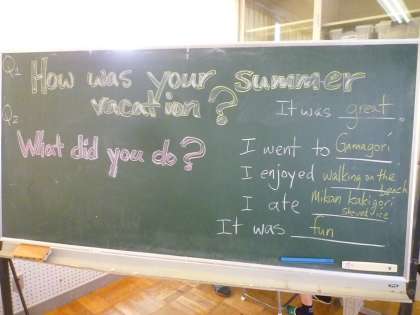 Q1 How was your summer
vacation?
It was great.
Q2
What did you do?
I went to Gamagori
I enjoyed walking on the
beach
I ate Mikan kakigori
shaved ice
It was fun